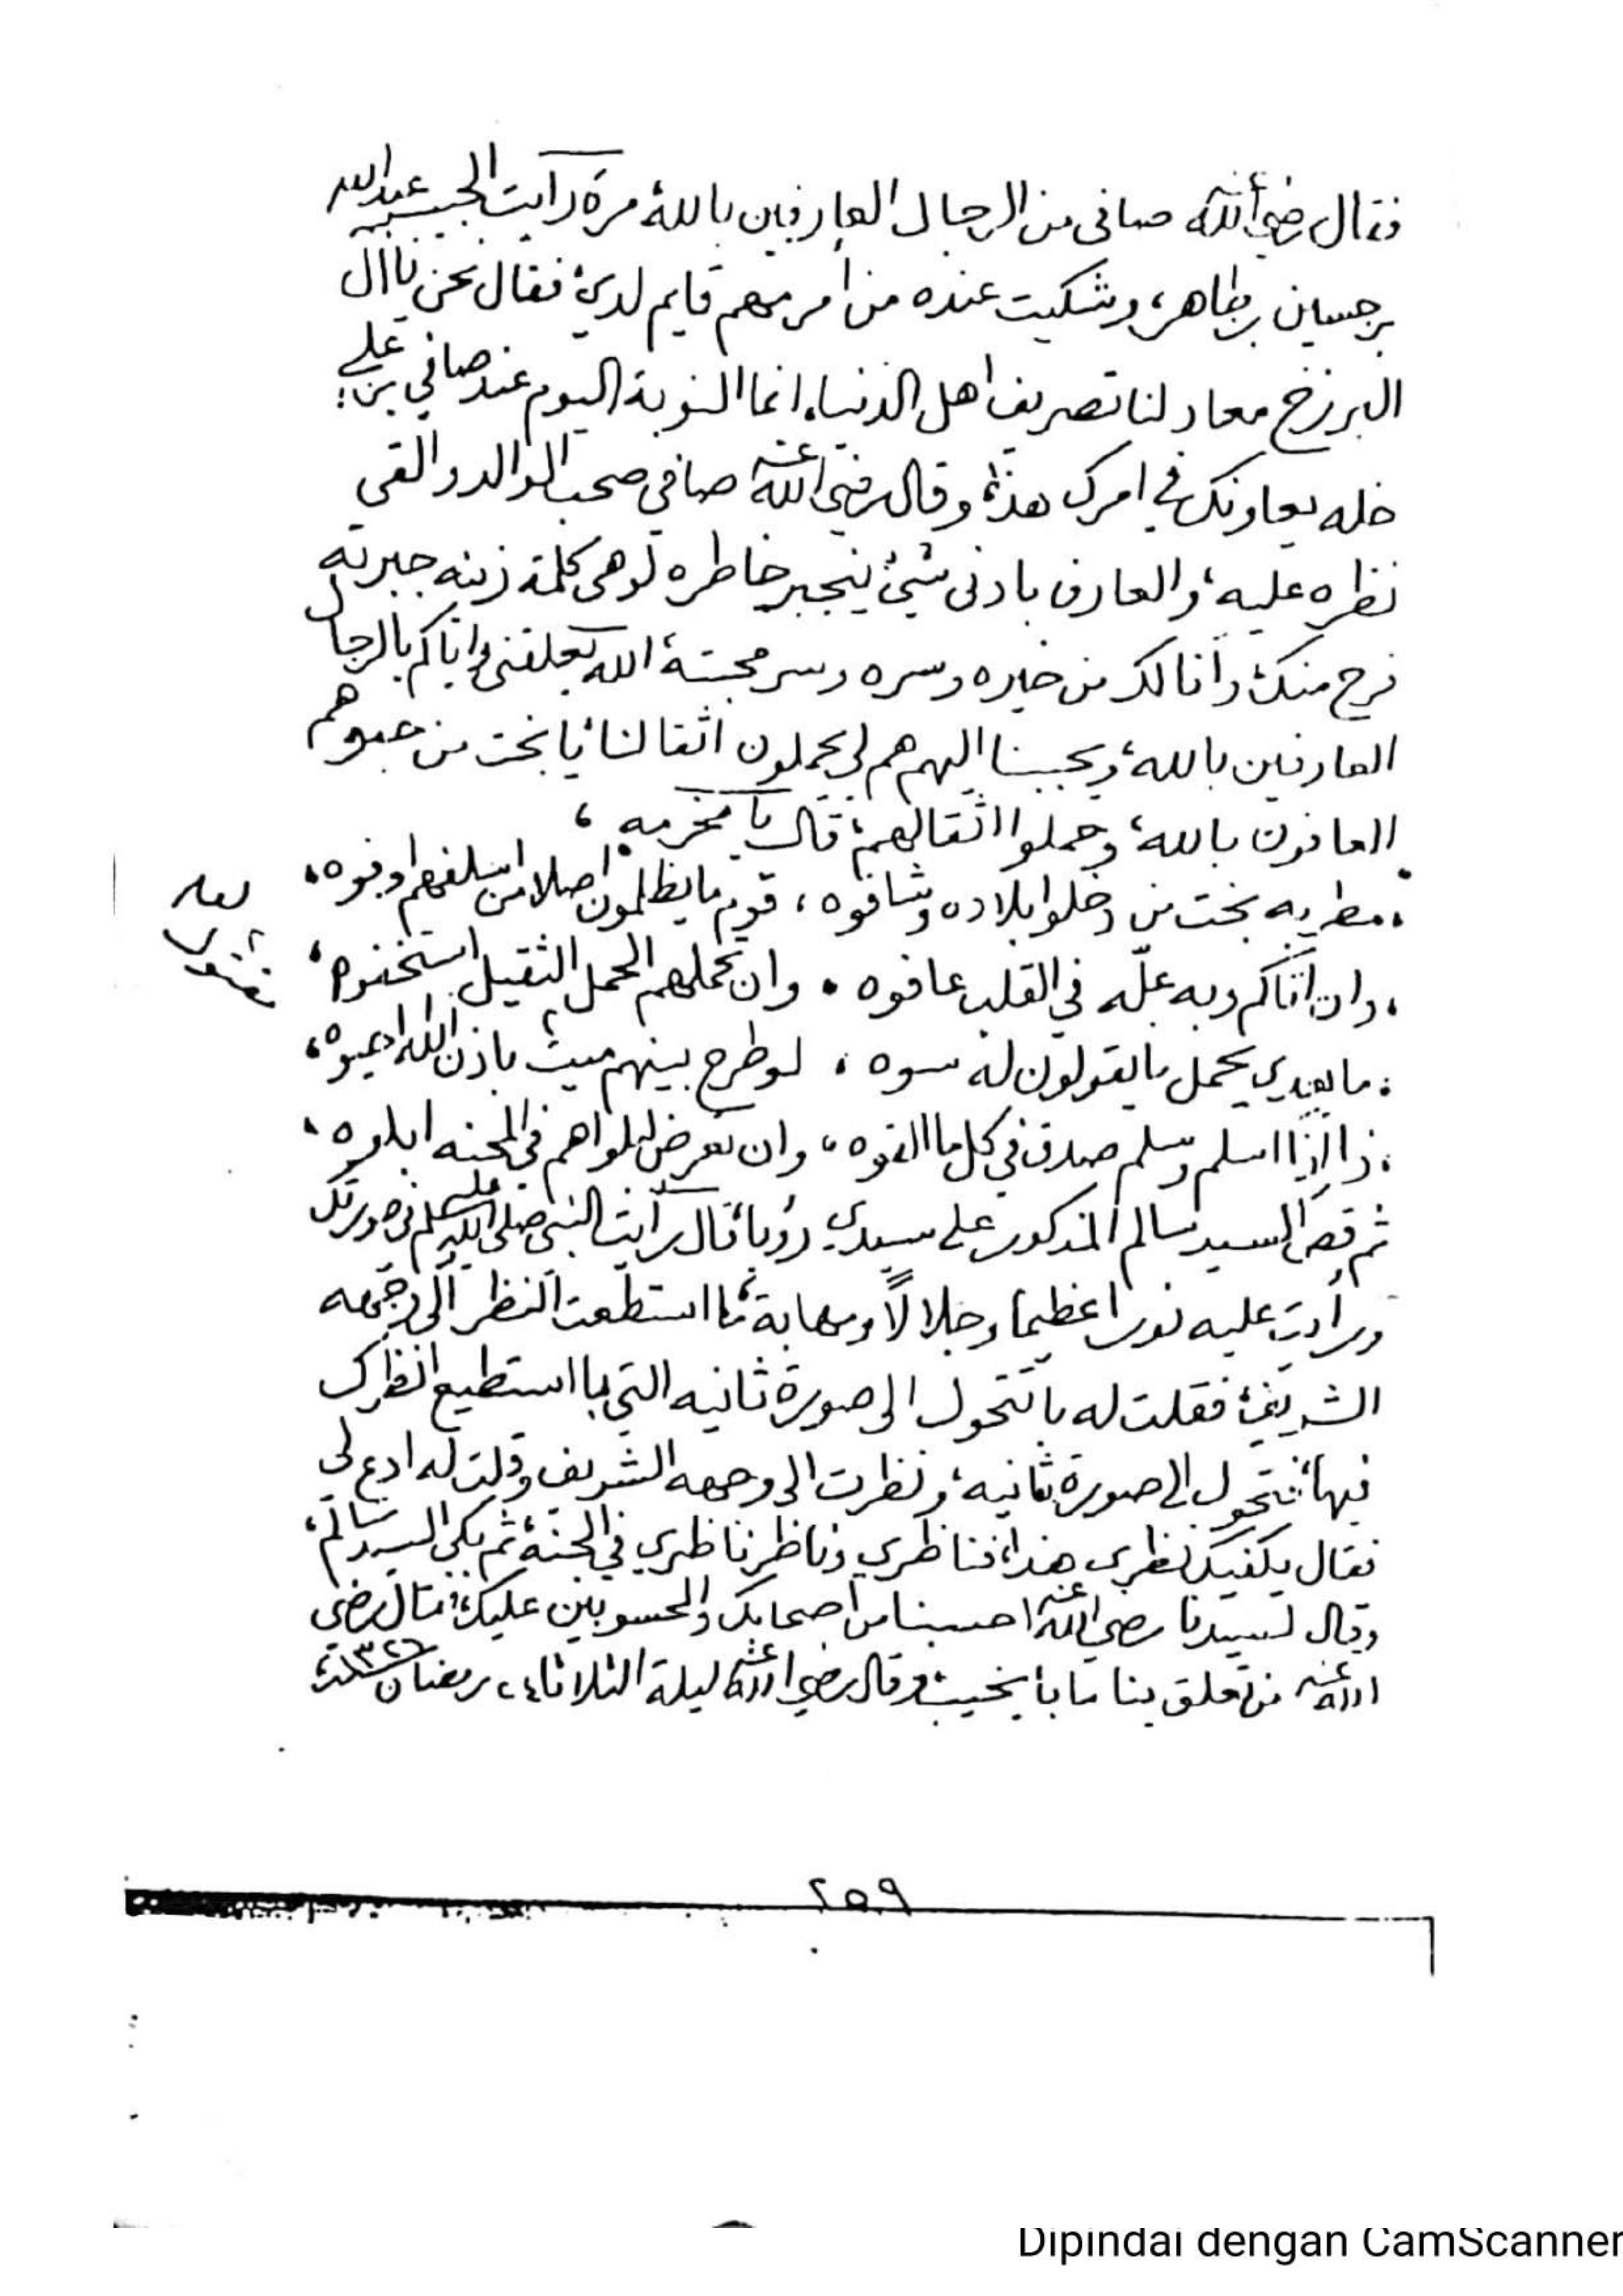 فقال رضي الله عنه صافي من الرجال العارفين بالله مرة رأيت الحبيب عبدالله
بن حسين بن طاهر، وشكيت عنده من أمر مهم قايم لدي، فقال نحن يا ال
البرزخ معاد لنا تصريف اهل الدنيا، انما النوبة اليوم عند صافي بن علي
خله يعاونك في امرك هذا، وقال رضي الله عنه صافي صحب الوالد والقى
نظره عليه، والعارف بادنى شيئ ينجبر خاطره لو هي كلمة زينه جبرته
فرح منك وأنا لك من خيره وسره وسر محبته، الله يعلقني واياكم بالرجال
العارفين بالله، ويحببنا اليهم هم لي يحملون اثقالنا، يا بخت من حبوهم
العارفون بالله، وحملوا اثقالهم، قال با مخرمه،
مطريه بخت من دخلوا بلاده وشافوه، قوم ما يظلمون اصلا من اسلفهم اوفوه،
لعله
، وان اتاكم وبه علّه في القلب عافوه، وان تحملهم الحمل الثقيل استخفوه،
ما بعيدي يحمل ما يقولون له سوه، لو طرح بينهم ميت باذن الله احيوه،
ذا اذا اسلم وسلم صدق في كل ما القوه، وان تعرض لبلواهم في المحنه ابلوه،
ثم قص السيد سالم المذكور على سيدي رؤيا، قال رأيت النبي صلى الله عليه وسلم في صورتك
ورأيت عليه نورا عظيما وجلالاً ومهابة، ما استطعت النظر الى وجهه
الشريف، فقلت له با تتحول الى صورة ثانيه التي با استطيع انظرك
فيها، فتحول الى صورة ثانيه، ونظرت الى وجهه الشريف وقلت له ادع لي
فقال يكفيك نظري هذا، فناظري وناظر ناظري في الجنة، ثم بكى السيد سالم،
وقال لسيدنا رضي الله عنه احسبنا من أصحابك والمحسوبين عليك، فقال رضي
الله عنه من تعلق بنا ما با يخيب، وقال رضي الله عنه ليلة الثلاثاء ٤ رمضان سنة ١٣٢٦
٢٥٩
Dipindai dengan CamScanner